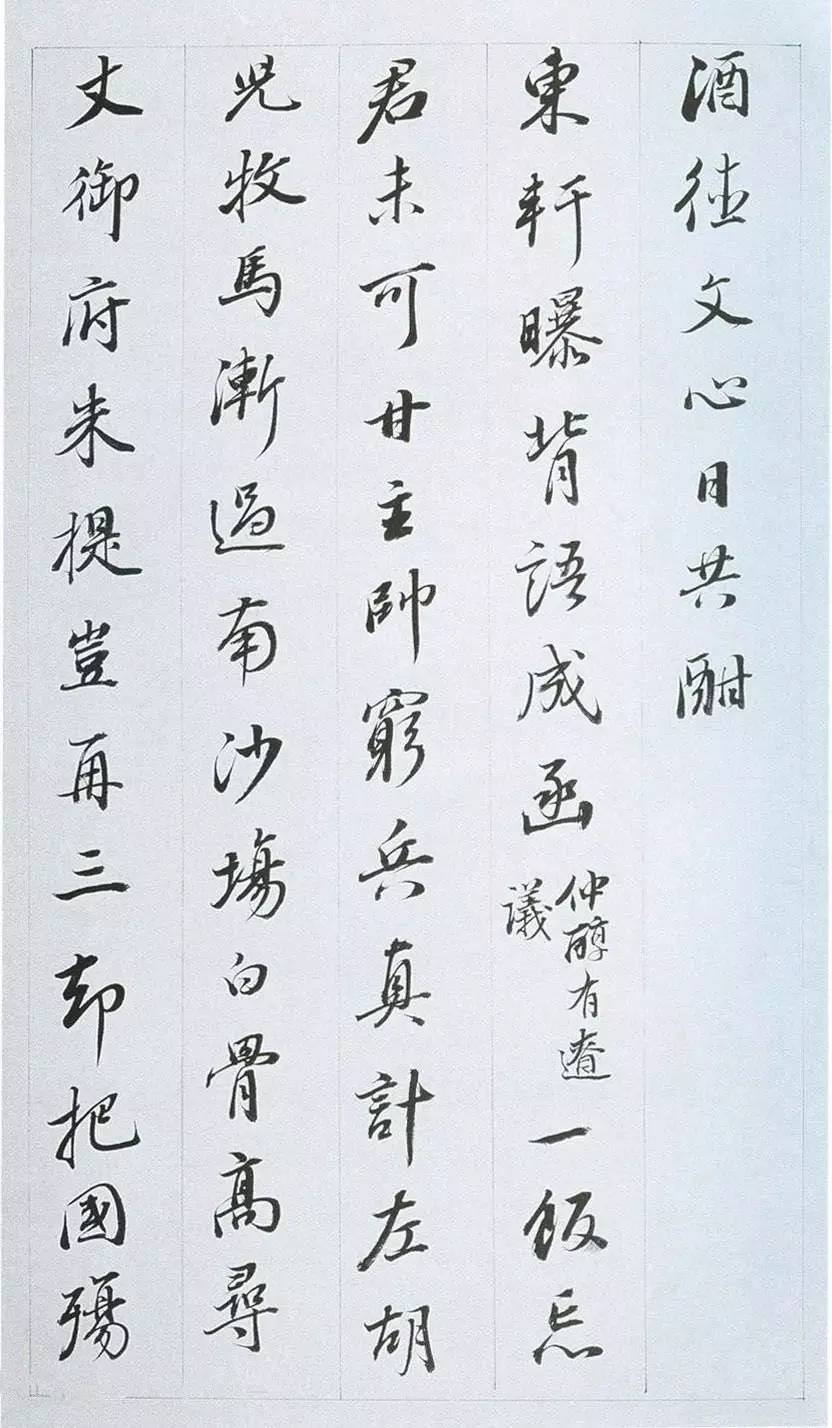 酒德文心日共酣
東軒曝背語成函
仲醇有遼
議
一飯忘
君未可甘主帥窮兵真計左胡
兒牧馬漸過南沙場白骨高尋
丈御府朱提豈再三却把國殤